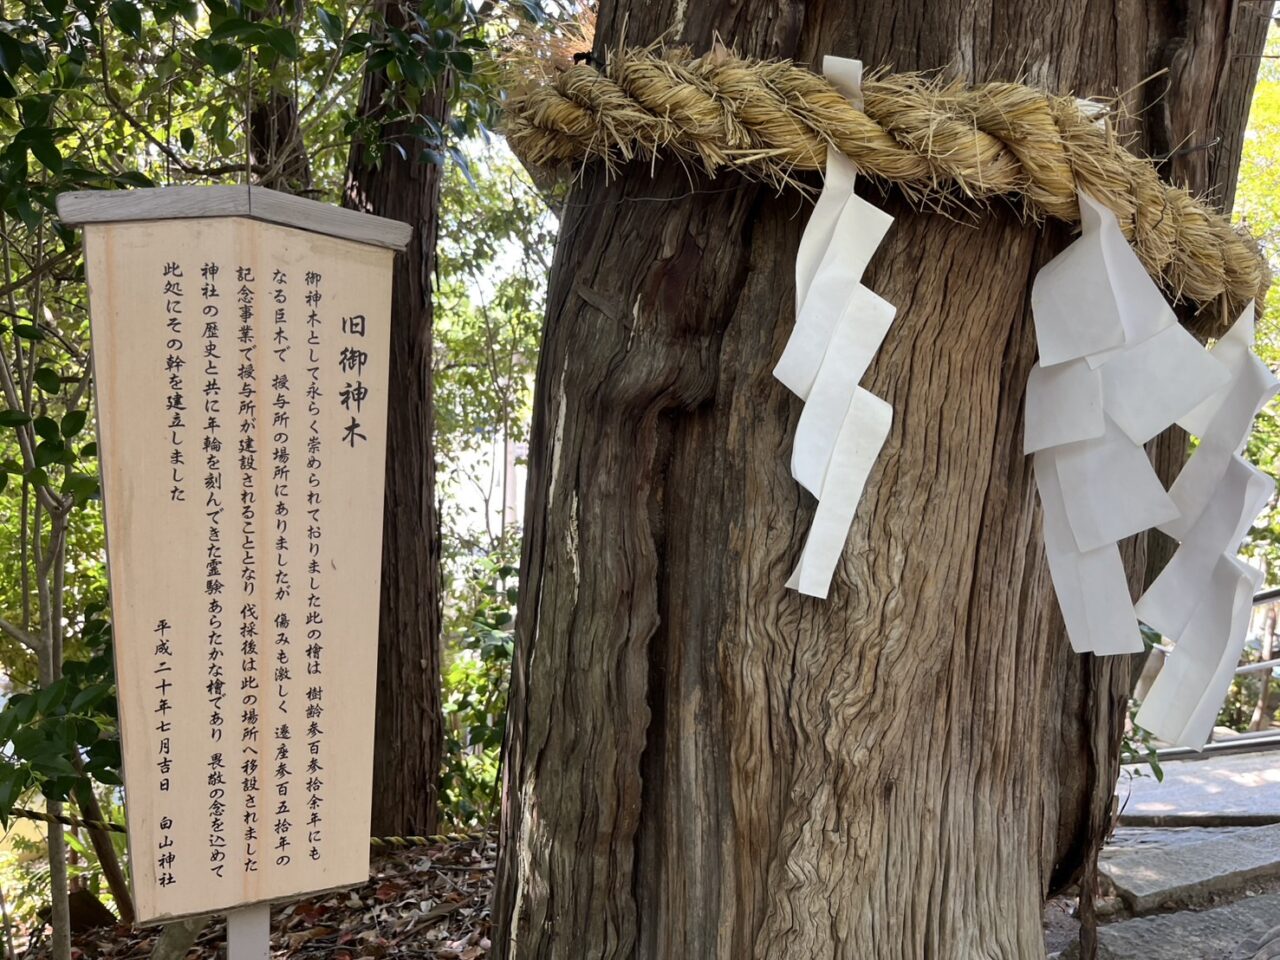 旧御神木
御神木として永らく崇められておりました此の檜は 樹齢参百参拾余年にも
なる巨木で 授与所の場所にありましたが 傷みも激しく 遷座参百五拾年の
記念事業で授与所が建設されることとなり 伐採後は此の場所へ移設されました
神社の歴史と共に年輪を刻んできた霊験あらたかな檜であり 畏敬の念を込めて
此処にその幹を建立しました
平成二十年七月吉日 白山神社